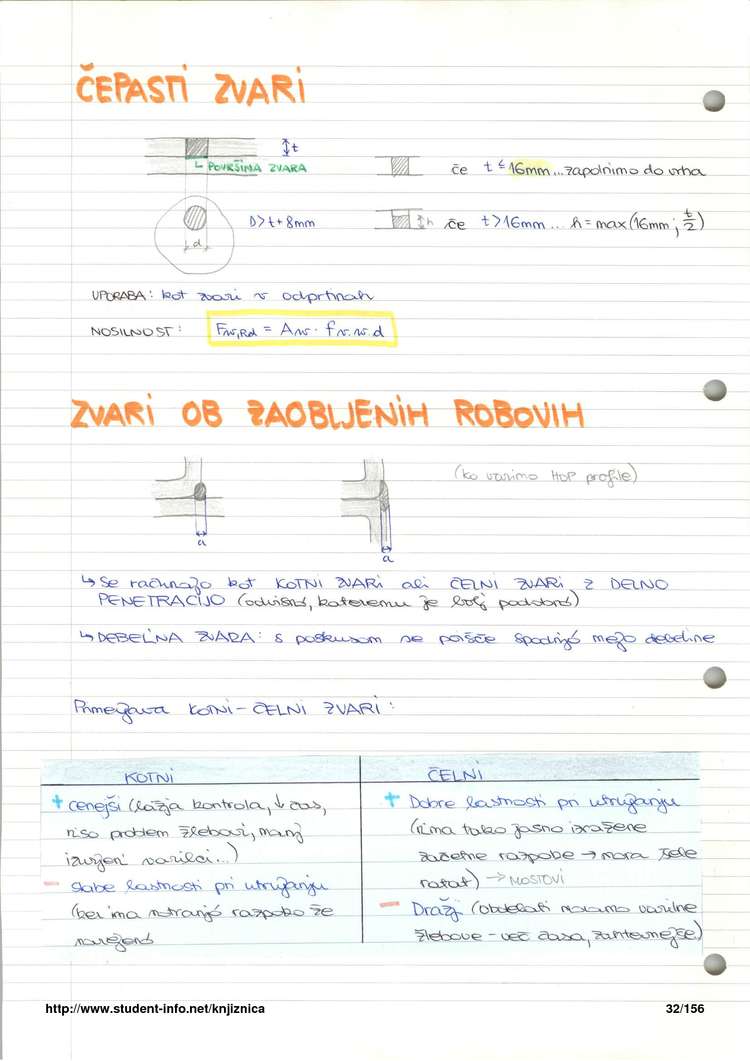 ČEPASTI ZVARI
t
↳ POVRŠINA ZVARA
če t ≤ 16mm ... zapolnimo do vrha
D > t + 8mm
d
h
če t > 16mm ... h = max (16mm ; t/2)
UPORABA: kot zvari v odprtinah
NOSILNOST: Fw,Rd = Aw · fv.w.d
ZVARI OB ZAOBLJENIH ROBOVIH
(ko varimo HOP profile)
a
a
↳ Se računajo kot KOTNI ZVARI ali ČELNI ZVARI Z DELNO
PENETRACIJO (odvisno, kateremu je bolj podobno)
↳ DEBELINA ZVARA: s poskusom se poišče spodnjo mejo debeline
Primerjava KOTNI - ČELNI ZVARI:
KOTNI
+ cenejši (lažja kontrola, ↓ čas,
niso problem žlebovi, manj
izurjeni varilci...)
- slabe lastnosti pri utrujanju
(ker ima notranjo razpoko že
narejeno
ČELNI
+ Dobre lastnosti pri utrujanju
(nima tako jasno izražene
začetne razpoke → mora šele
rasti) → MOSTOVI
- Dražji (obdelati moramo varilne
žlebove - več časa, zahtevnejše)
http://www.student-info.net/knjiznica
32/156